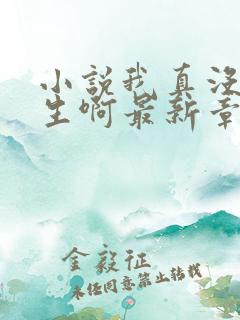 小說我真沒
生啊最新章
金毅征
未经同意禁止转载